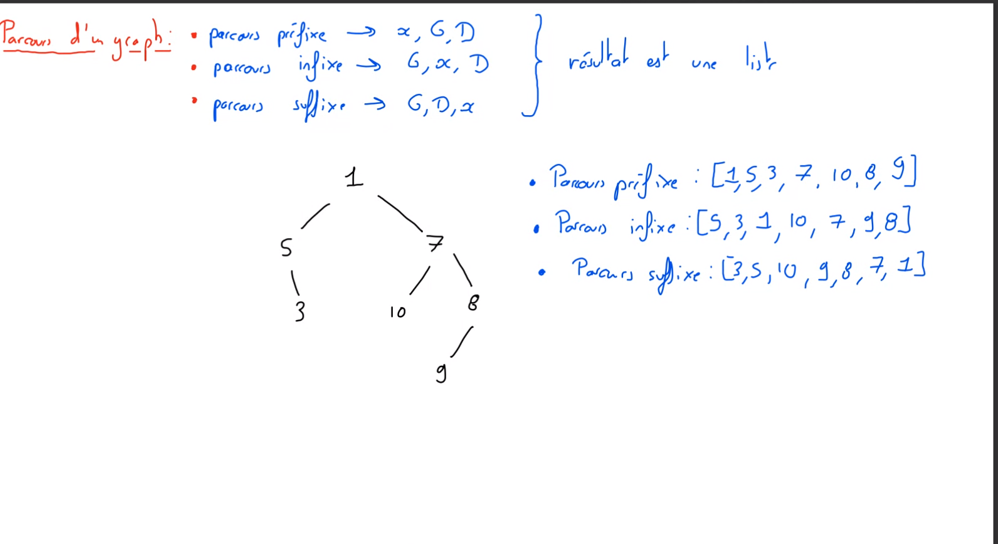 Parcours d'un graph : • parcours préfixe → x, G, D
• parcours infixe → G, x, D
• parcours suffixe → G, D, x
résultat est une liste
1
5 7
3 10 8
9
• Parcours préfixe : [1, 5, 3, 7, 10, 8, 9]
• Parcours infixe : [5, 3, 1, 10, 7, 9, 8]
• Parcours suffixe : [3, 5, 10, 9, 8, 7, 1]